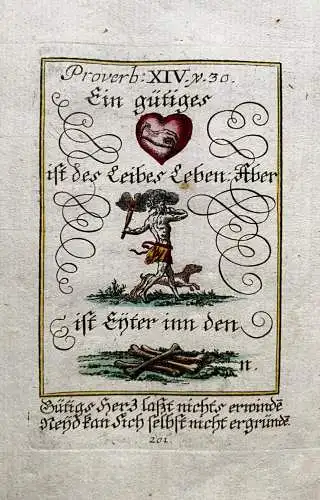 Proverb: XIV. v. 30.
Ein gütiges
ist des Leibes Leben: Aber
ist Eÿter inn den
n.
Gütigs Herz laßt nichts erwindẽ
Neÿd kan sich selbst nicht ergründẽ.
201.